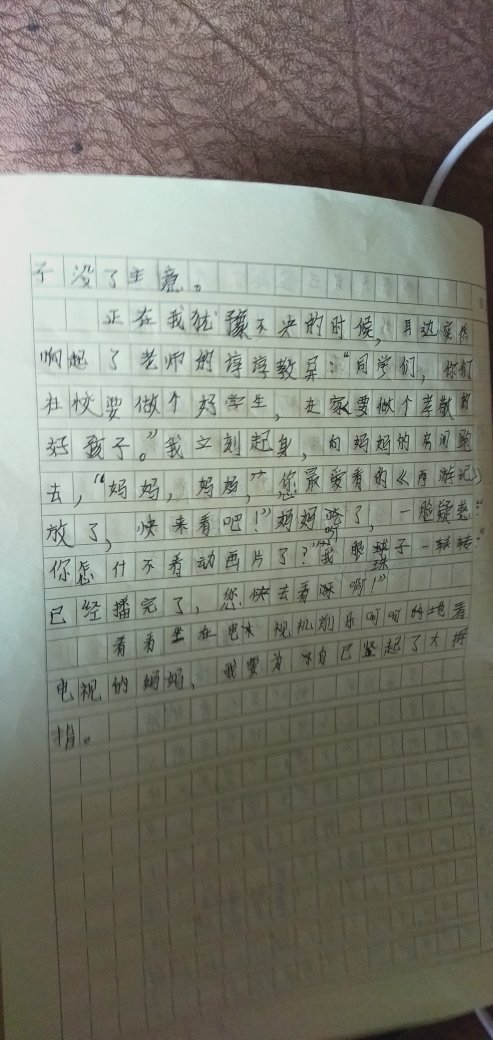 子没了生意。
正在我犹豫不决的时候，耳边突然
响起了老师的谆谆教异：“同学们，你们
在校要做个好学生，在家要做个孝敬的
好孩子。”我立刻起身，向妈妈的房间跑
去，“妈妈，妈妈，”您最爱看的《西游记》
放了，快来看吧！”妈妈听了，一脸疑惑：“
你怎什不看动画片了？”我眼珠子一转：“
已经播完了，您快去看呀啊！”
看着坐在电视机前乐呵呵地看
电视的妈妈，我要为自己竖起了大拇
指。